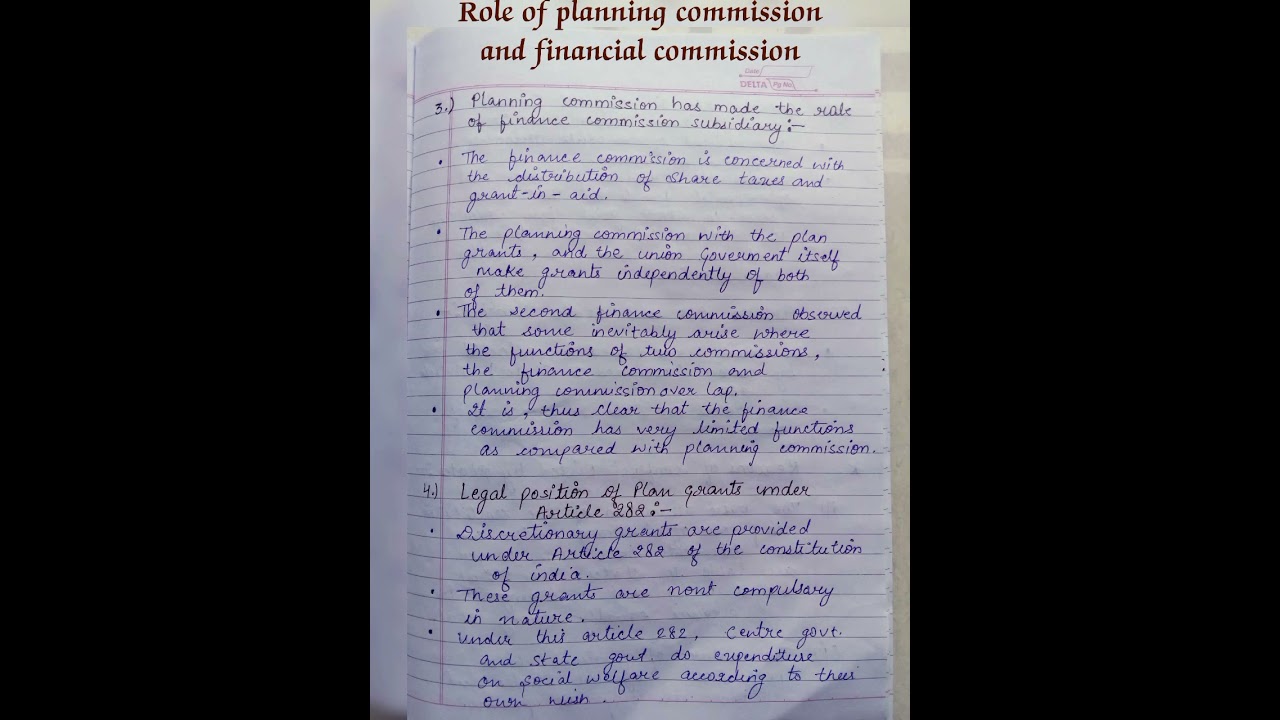 Role of planning commission
and financial commission
Date
DELTA Pg No.
3.) Planning commission has made the role
of finance commission subsidiary:-
• The finance commission is concerned with
the distribution of share taxes and
grant-in-aid.
• The planning commission with the plan
grants, and the union Goverment itself
make grants independently of both
of them.
• The second finance commission observed
that some inevitably arise where
the functions of two commissions,
the finance commission and
planning commission over lap.
• It is, thus clear that the finance
commission has very limited functions
as compared with planning commission.
4.) Legal position of Plan grants under
Article 282:-
• Discretionary grants are provided
under Article 282 of the constitution
of india.
• These grants are nont compulsary
in nature.
• Under this article 282, Centre govt.
and state govt. do expenditure
on social welfare according to their
own wish.